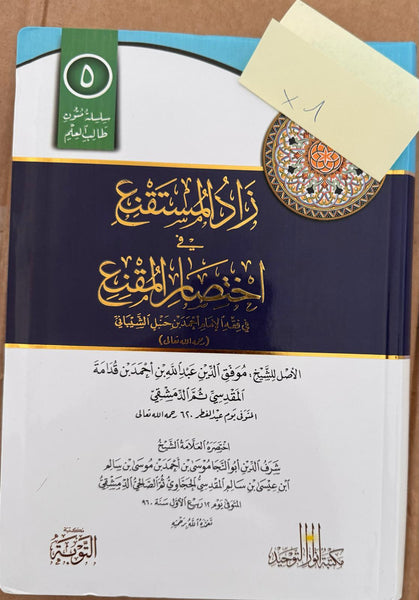 x 1
٥
سلسلة متون
طالب العلم
زاد المستقنع
في
اختصار المقنع
في فقه الإمام أحمد بن حنبل الشيباني
(رحمه الله تعالى)
الأصل للشيخ، موفق الدين عبد الله بن أحمد بن قدامة
المقدسي ثم الدمشقي
المتوفى يوم عيد الفطر ٦٢٠ رحمه الله تعالى
اختصره العلامة الشيخ
شرف الدين أبو النجا موسى بن أحمد بن موسى بن سالم
ابن عيسى بن سالم المقدسي الحجاوي ثم الصالحي الدمشقي
المتوفى يوم ١٢ ربيع الأول سنة ٩٦٠
تغمده الله برحمته
مكتبة أنوار التوحيد
مكتبة
التوبة